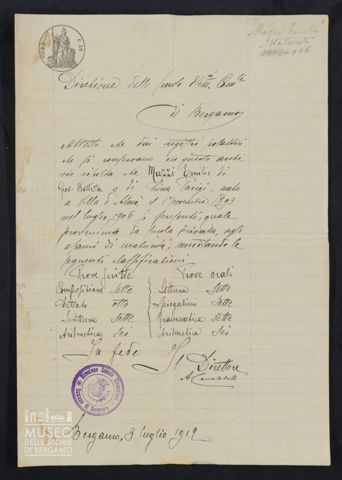 Direzione delle Scuole Elem.ri Com.li
di Bergamo
Attesto che dai registri scolastici
che si conservano in questo archi
vio risulta che Mazzi Emilio di
Giov. Battista e di Parigi, nato
a Villa d'Almè il 1893
nel luglio 1906 si presentò, quale
proveniente da scuola privata, agli
esami di maturità, riportando le
seguenti classificazioni
Prove scritte Prove orali
Composizione Sette Lettura Sette
Dettato otto Spiegazioni Sette
Scrittura Sette Grammatica Sette
Aritmetica Sei Aritmetica Sei
In fede Il Direttore
Bergamo, 3 luglio 1912
MUSEO
DELLE STORIE
DI BERGAMO